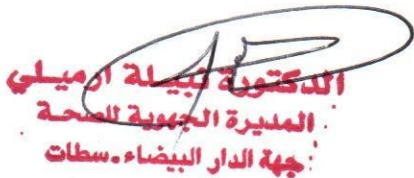 الدكتورة نبيلة ارميلي
المديرة الجهوية للصحة
جهة الدار البيضاء.سطات